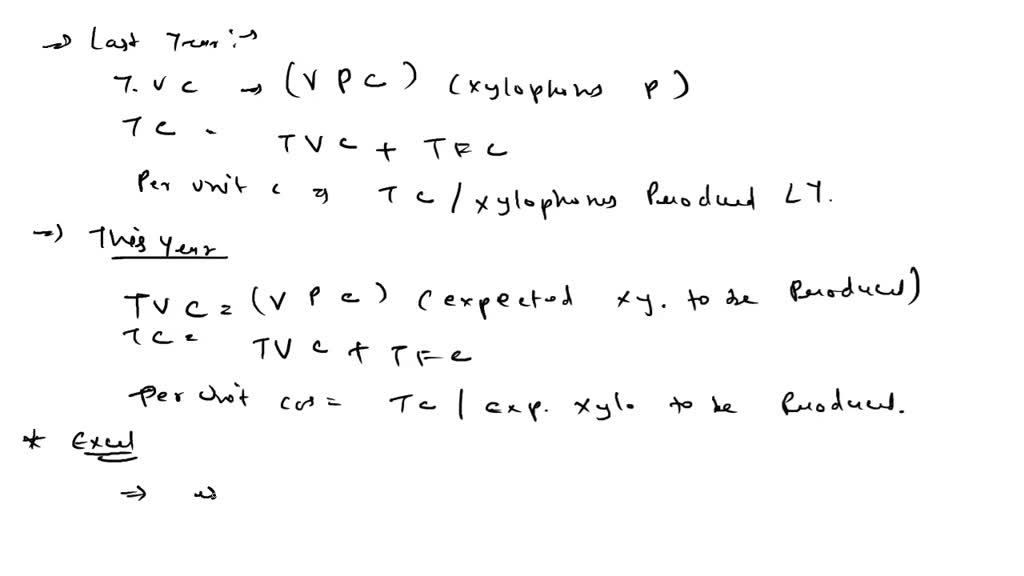 → Last Year :→
T. V C → (V P C) (xylophons P)
T C - TVC + TFC
Per unit c ⇒ TC / xylophons Produced LY.
→) This year
TVC = (V P C) (expected xy. to be Produced)
TC = TVC + TFC
Per unit cos = TC / exp. xylo to be Produced.
* Excel
⇒